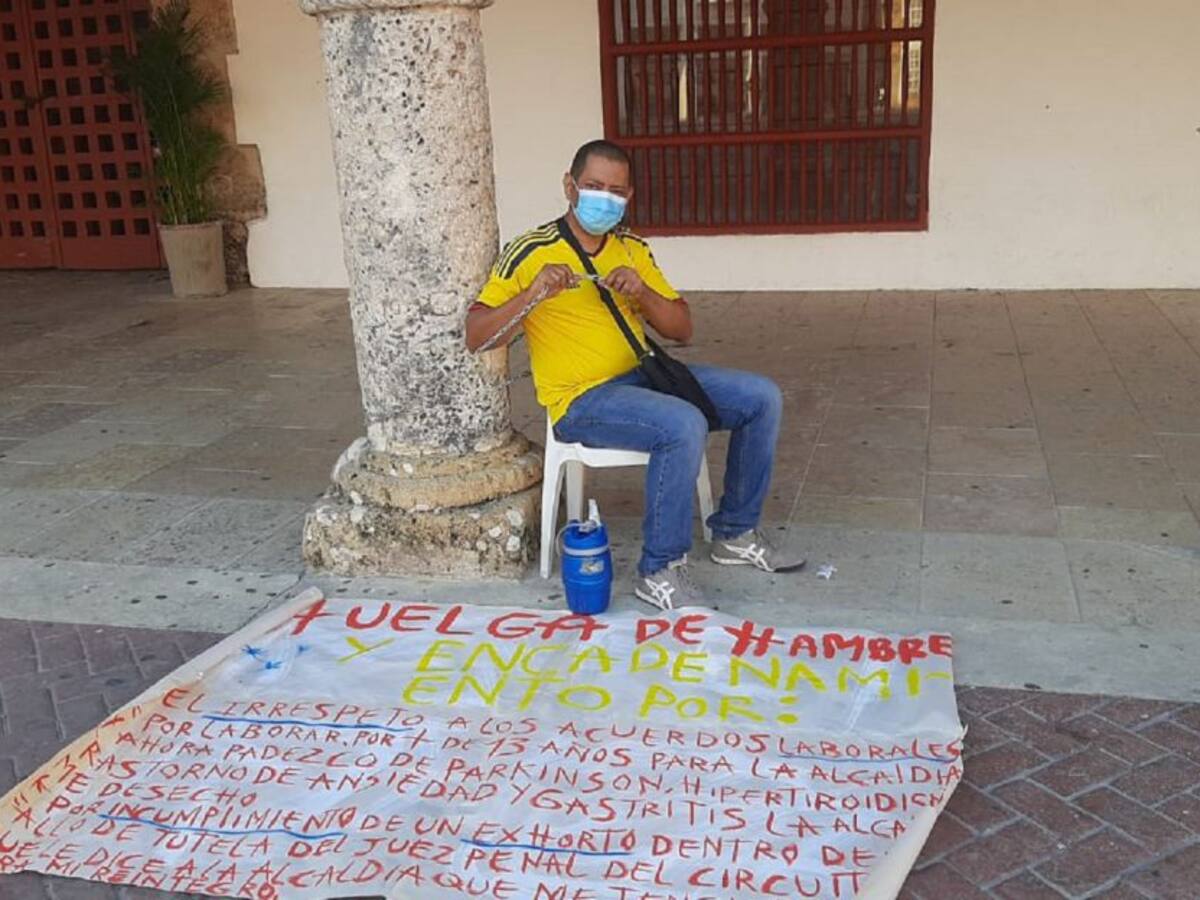 HUELGA DE HAMBRE
Y ENCADENAMI-
ENTO POR:
EL IRRESPETO A LOS ACUERDOS LABORALES
POR LABORAR. POR + DE 13 AÑOS PARA LA ALCALDIA
AHORA PADEZCO DE PARKINSON, HIPERTIROIDISM
TRASTORNO DE ANSIEDAD Y GASTRITIS LA ALCA
ME DESECHO
POR INCUMPLIMIENTO DE UN EXHORTO DENTRO DE
ALLO DE TUTELA DEL JUEZ PENAL DEL CIRCUIT
UE LE DICE A LA ALCALDIA QUE ME
MI REINTEGRO